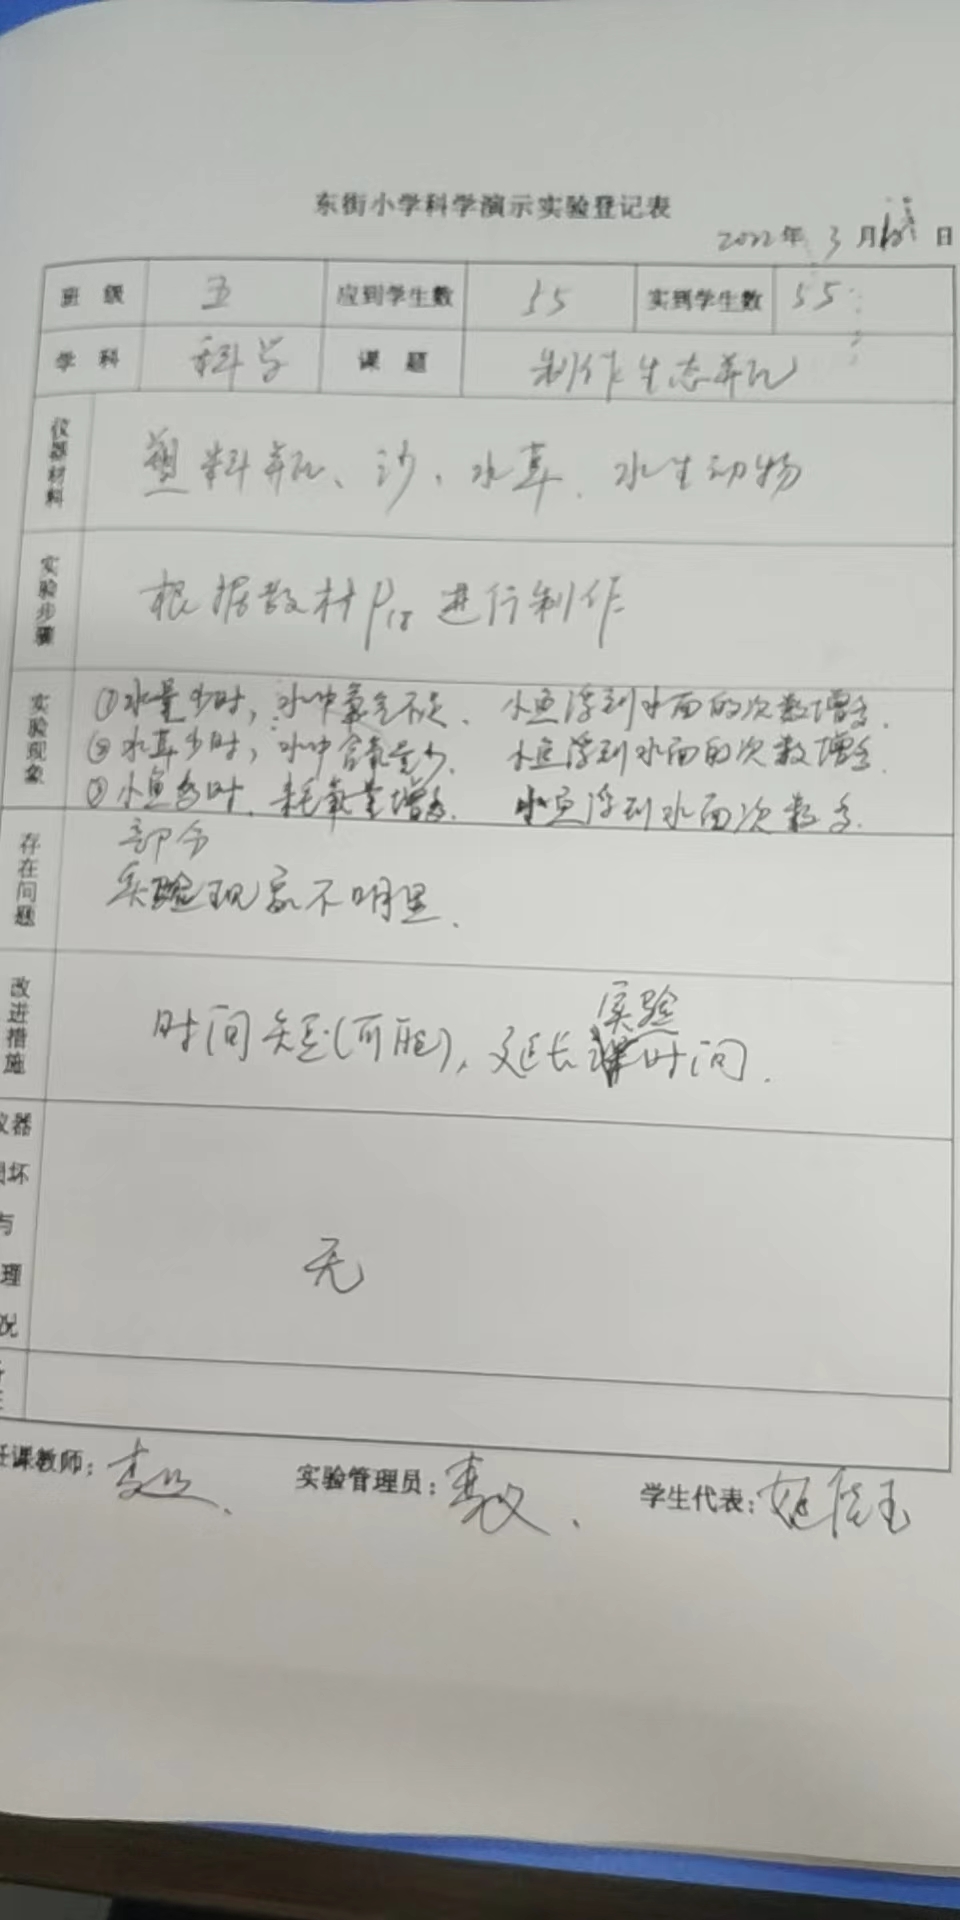 东街小学科学演示实验登记表
2022年 3 月 日
班 级 五 应到学生数 55 实到学生数 55
学 科 科学 课 题 制作生态瓶
仪器材料 塑料瓶、沙、水草、水生动物
实验步骤 根据教材P18进行制作
实验现象 ①水量少时,水中氧气不足、小鱼浮到水面的次数增多.
②水草少时,水中含氧量少、小鱼浮到水面的次数增多.
③小鱼多时、耗氧量增多、小鱼浮到水面次数多.
存在问题 部分
实验现象不明显.
改进措施 实验
时间短(可能),延长时间.
仪器
坏
与
理
况
无
任课教师: 实验管理员: 学生代表: